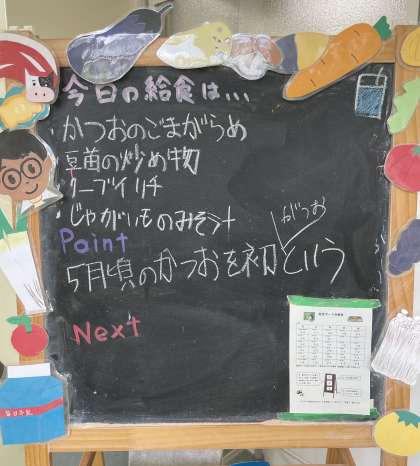 今日の給食は...
・かつおのごまがらめ
・豆苗の炒め物
・クーブイリチ
・じゃがいものみそ汁
Point
5月頃のかつおを初がつおという
Next
毎日牛乳